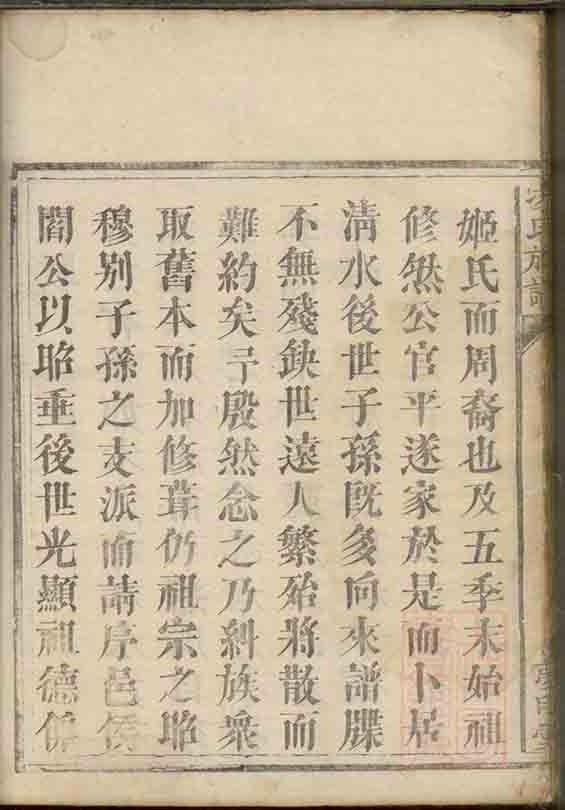 姬氏而周裔也及五季末始祖
修然公官平遂家於是而卜居
淸水後世子孫旣多向來譜牒
不無殘缺世遠人繁殆將散而
難約矣予殷然念之乃糾族衆
取舊本而加修葺仍祖宗之昭
穆別子孫之支派而請序邑侯
閻公以昭垂後世光顯祖德俾
氏族譜